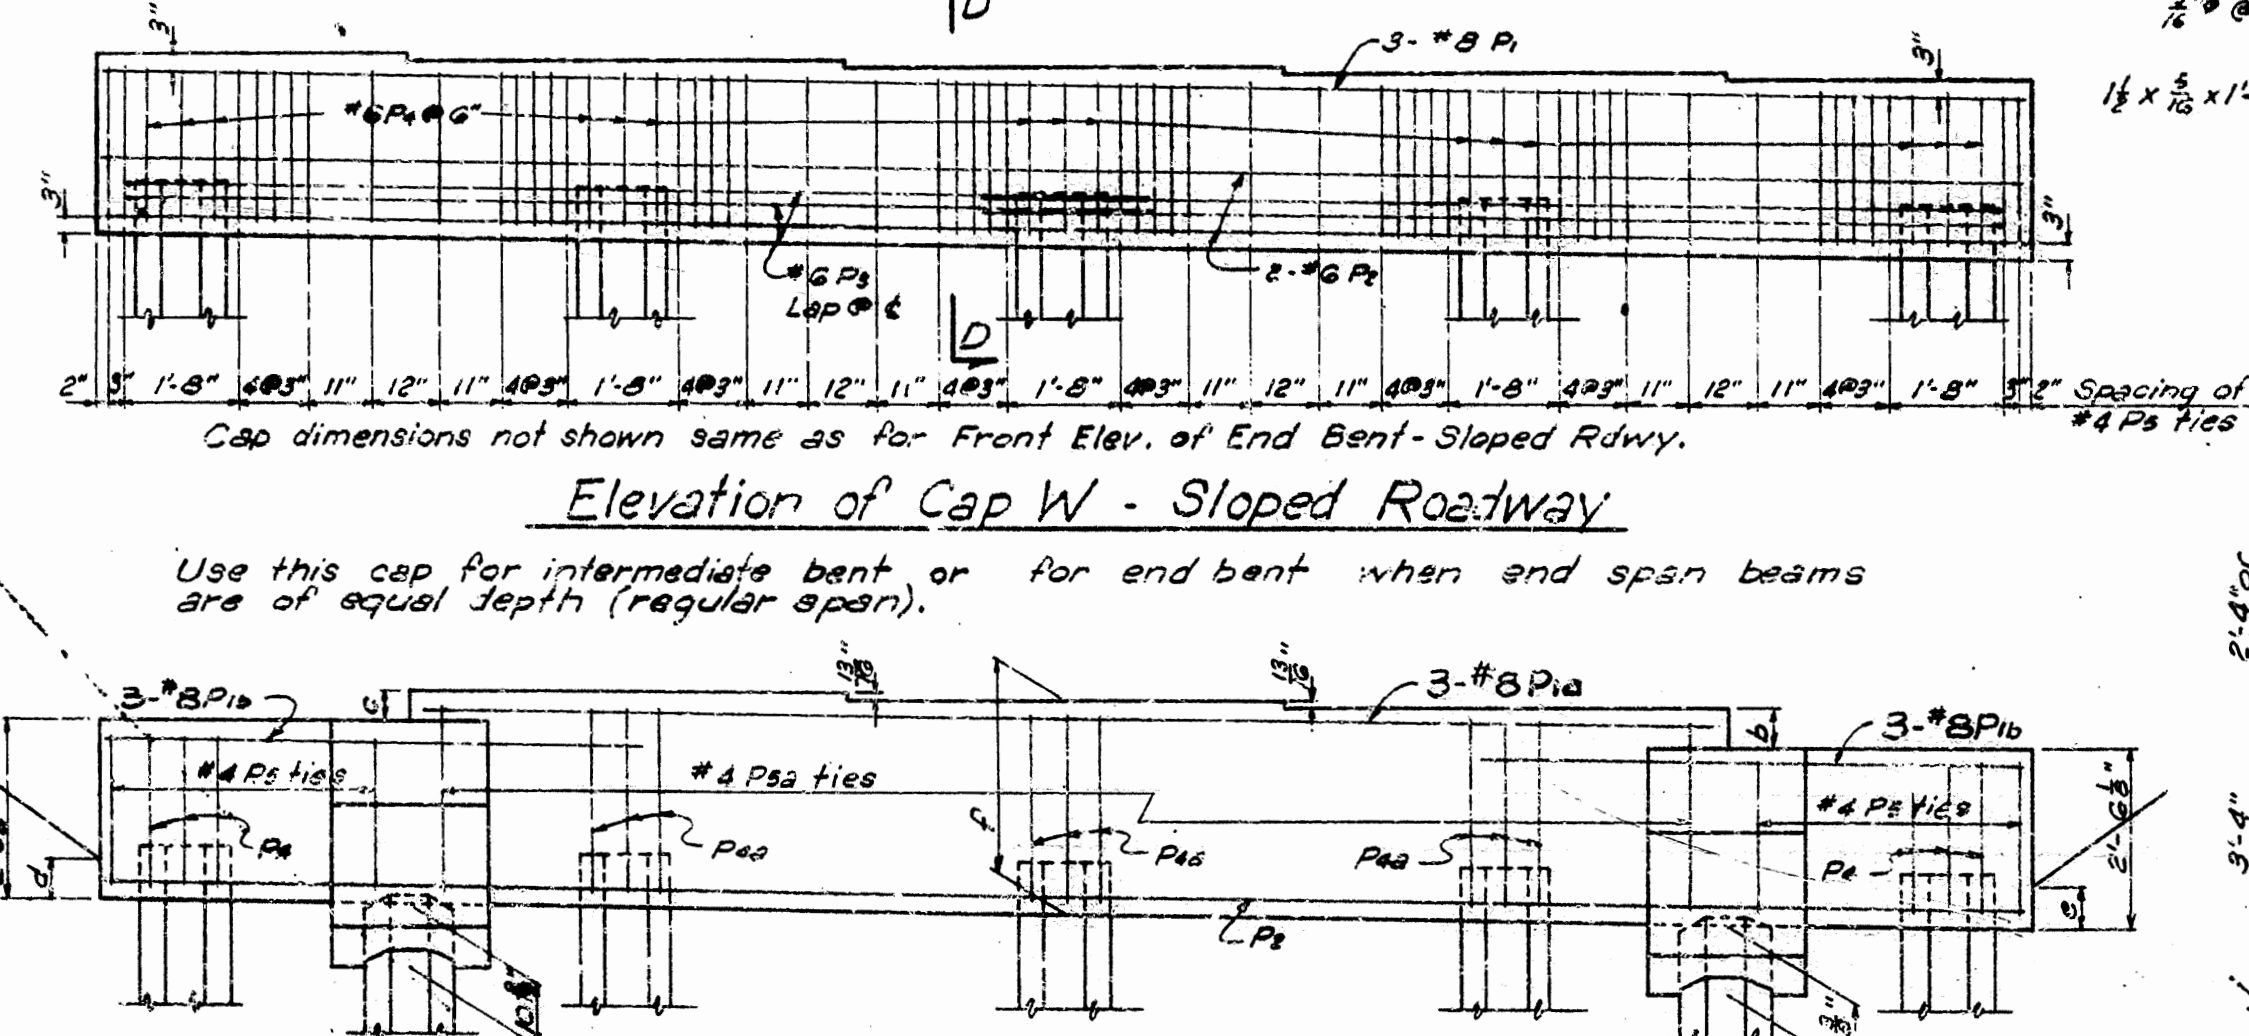 D
3"
3- #8 P1
3"
1½ x 5/16 x 1'-
#6 P4 @ 6"
3"
3"
#6 P3
Lap @ ℄
2-#6 P2
D
2" 3" 1'-8" 4@3" 11" 12" 11" 4@3" 1'-8" 4@3" 11" 12" 11" 4@3" 1'-8" 4@3" 11" 12" 11" 4@3" 1'-8" 4@3" 11" 12" 11" 4@3" 1'-8" 3" 2" Spacing of
#4 P5 ties
Cap dimensions not shown same as for Front Elev. of End Bent-Sloped Rdwy.
Elevation of Cap W - Sloped Roadway
Use this cap for intermediate bent or for end bent when end span beams
are of equal depth (regular span).
2'-4" or
13/16"
13/16"
3-#8P1b
c
3-#8P1a
b
3-#8P1b
#4 P5 ties
#4 P5a ties
f
#4 P5 ties
2'-6⅛"
3'-4"
P4
P4a
P4a
P4a
P4
d
e
P2